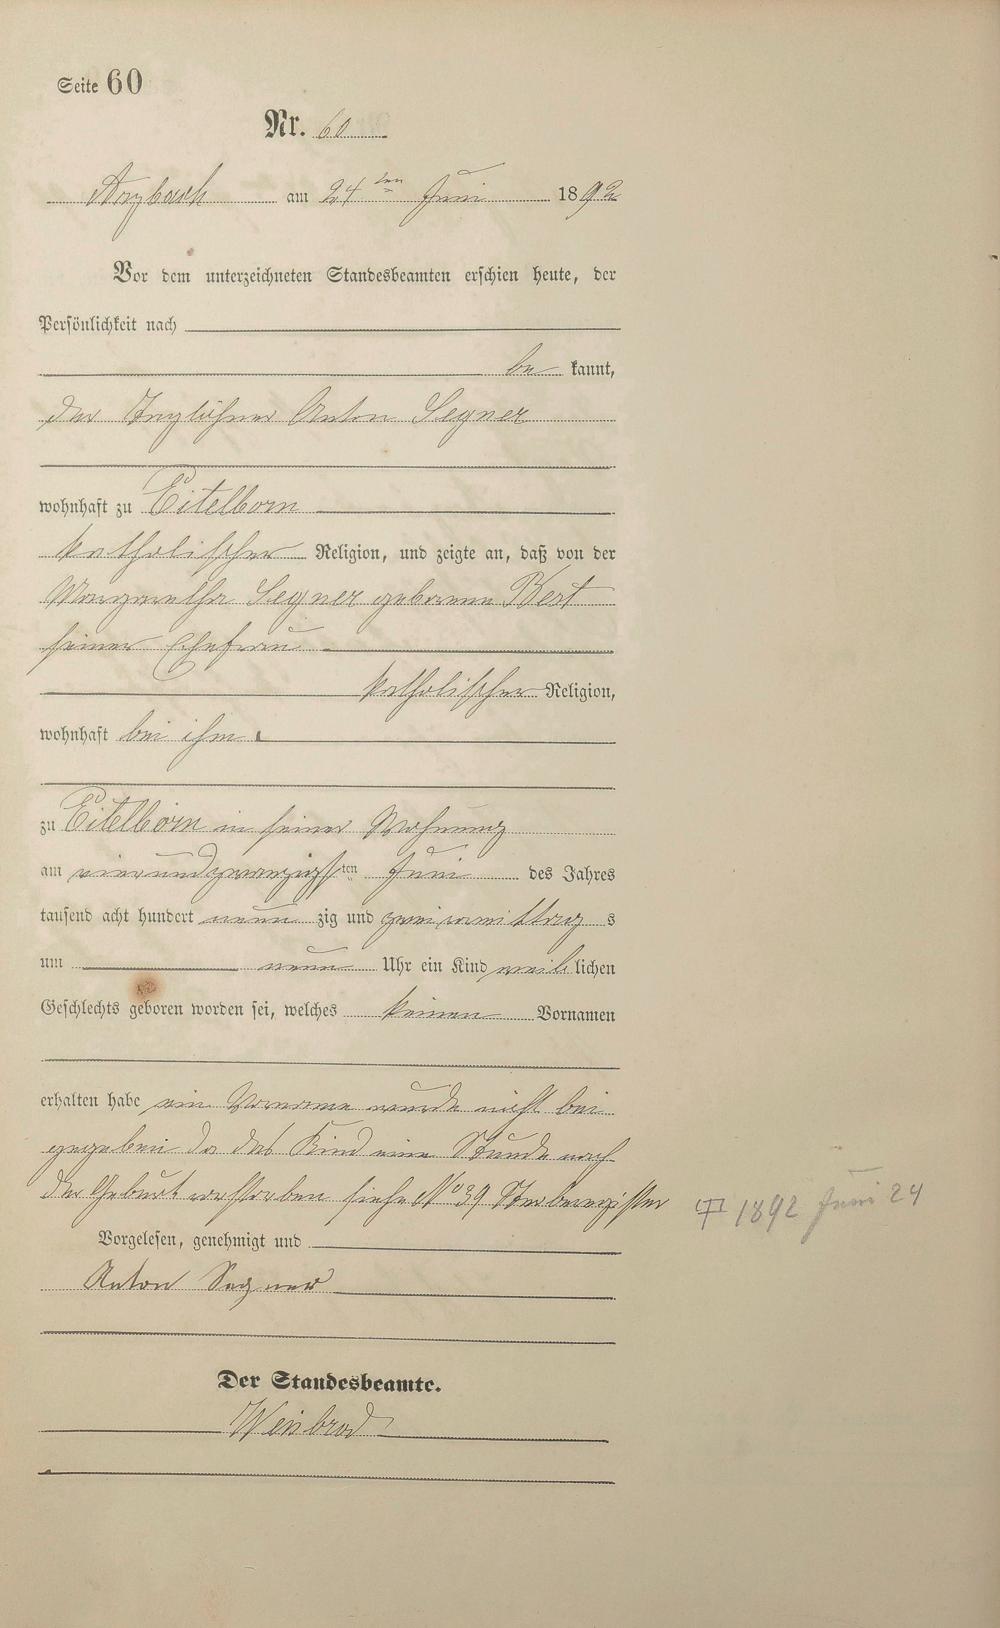 Seite 60
Nr. 60
Arzbach am 24ten Juni 1892
Vor dem unterzeichneten Standesbeamten erschien heute, der
Persönlichkeit nach
be kannt,
der Taglöhner Anton Segner
wohnhaft zu Eitelborn
katholischer Religion, und zeigte an, daß von der
Margarethe Segner geborene Best
seiner Ehefrau
katholischer Religion,
wohnhaft bei ihm
zu Eitelborn in seiner Wohnung
am vierundzwanzigsten Juni des Jahres
tausend acht hundert neun zig und zwei vormittag s
um neun Uhr ein Kind weib lichen
Geschlechts geboren worden sei, welches keinen Vornamen
erhalten habe ein Vorname wurde nicht bei
gegeben da das Kind eine Stunde nach
der Geburt verstorben siehe No 39 Sterberegister
1892 Juni 24
Vorgelesen, genehmigt und
Anton Segner
Der Standesbeamte.
Weinbrod